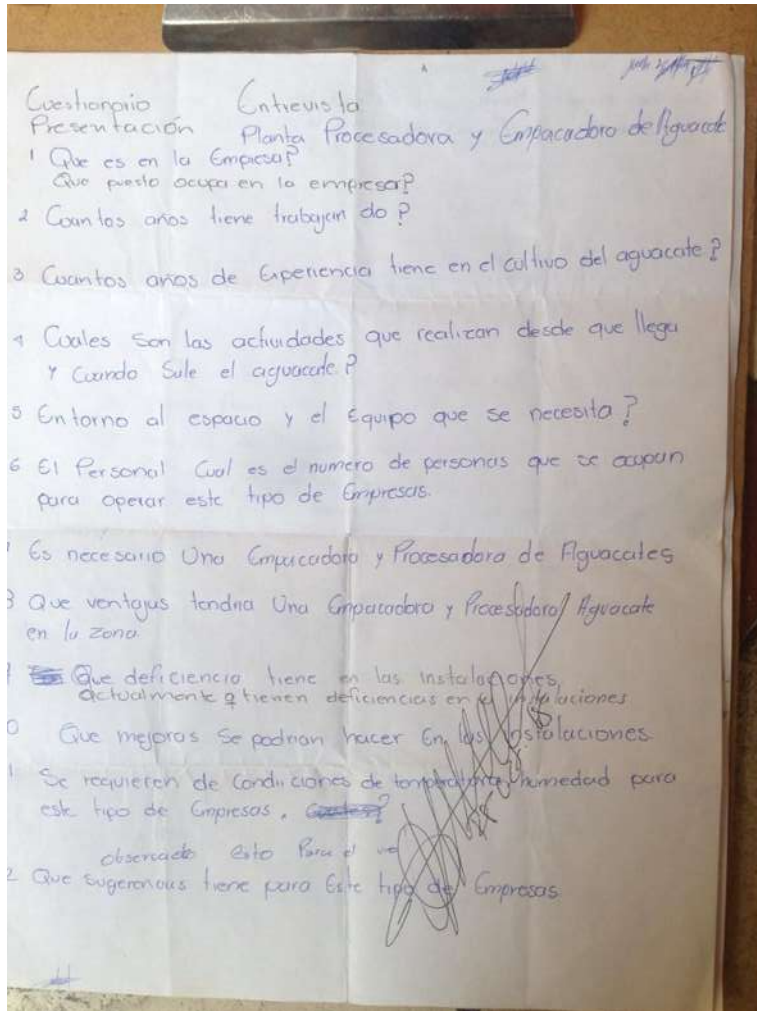 Cuestionario Entrevista
Presentación Planta Procesadora y Empacadora de Aguacate
1 Que es en la Empresa?
Que puesto ocupa en la empresa?
2 Cuantos años tiene trabajan do?
3 Cuantos años de Experiencia tiene en el cultivo del aguacate?
4 Cuales son las actividades que realizan desde que llega
y Cuando Sale el aguacate?
5 Entorno al espacio y el Equipo que se necesita?
6 El Personal Cual es el numero de personas que se ocupan
para operar este tipo de Empresas.
Es necesario Una Empacadora y Procesadora de Aguacates
Que ventajas tendria Una Empacadora y Procesadora Aguacate
en la zona.
Que deficiencia tiene en las Instalaciones,
actualmente tienen deficiencias en instalaciones
Que mejoras Se podrian hacer En las Instalaciones.
Se requieren de Condiciones de temperatura, humedad para
este tipo de Empresas.
observado esto Para el
2 Que sugerencias tiene para Este tipo de Empresas